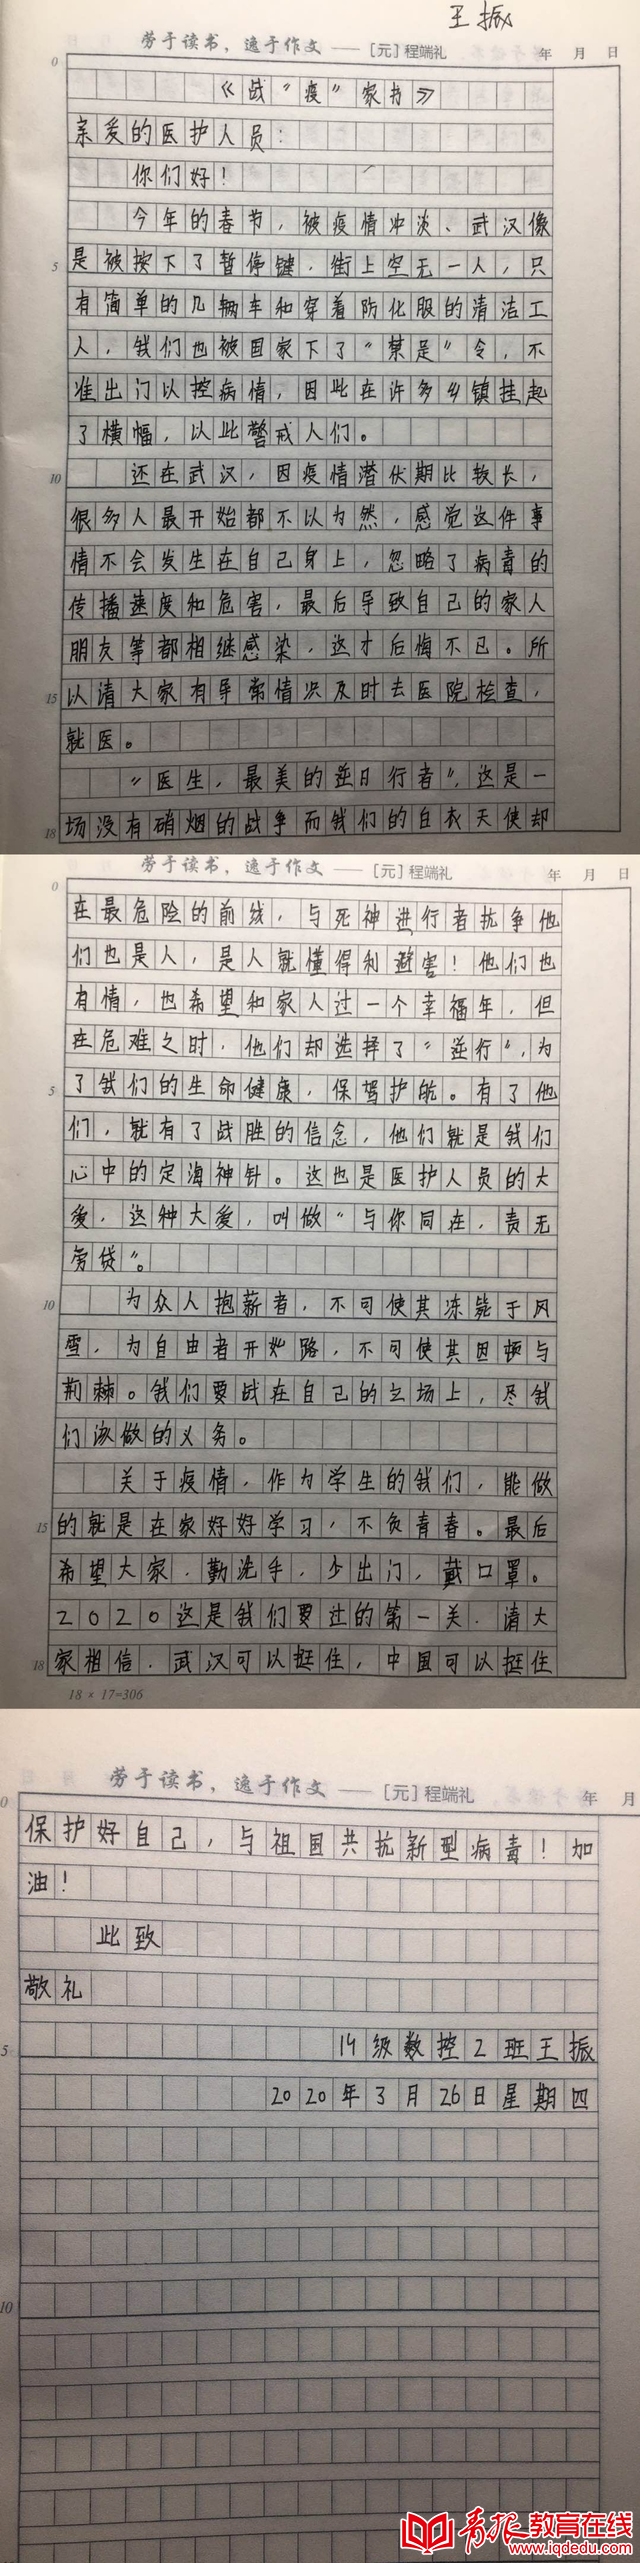 王振
劳于读书，逸于作文 —— [元]程端礼 年 月 日
0
《战“疫”家书》
亲爱的医护人员：
你们好！
今年的春节，被疫情冲淡、武汉像
5 是被按下了暂停键，街上空无一人，只
有简单的几辆车和穿着防化服的清洁工
人，我们也被国家下了“禁足”令，不
准出门以控病情，因此在许多乡镇挂起
了横幅，以此警戒人们。
10 还在武汉，因疫情潜伏期比较长，
很多人最开始都不以为然，感觉这件事
情不会发生在自己身上，忽略了病毒的
传播速度和危害，最后导致自己的家人
朋友等都相继感染，这才后悔不已。所
15 以请大家有异常情况及时去医院检查，
就医。
“医生，最美的逆日行者”，这是一
18 场没有硝烟的战争而我们的白衣天使却
劳于读书，逸于作文 —— [元]程端礼 年 月 日
0
在最危险的前线，与死神进行者抗争他
们也是人，是人就懂得利避害！他们也
有情，也希望和家人过一个幸福年，但
在危难之时，他们却选择了“逆行”，为
5 了我们的生命健康，保驾护航。有了他
们，就有了战胜的信念，他们就是我们
心中的定海神针。这也是医护人员的大
爱，这种大爱，叫做“与你同在，责无
旁贷”。
10 为众人抱薪者，不可使其冻毙于风
雪，为自由者开路，不可使其困顿与
荆棘。我们要战在自己的立场上，尽我
们该做的义务。
关于疫情，作为学生的我们，能做
15 的就是在家好好学习，不负青春。最后
希望大家，勤洗手，少出门，戴口罩。
2020这是我们要过的第一关，请大
18 家相信，武汉可以挺住，中国可以挺住
18 × 17=306
劳于读书，逸于作文 —— [元]程端礼 年 月
0
保护好自己，与祖国共抗新型病毒！加
油！
此致
敬礼
5 19级数控2班王振
2020年3月26日星期四
10
青报教育在线
www.iqdedu.com